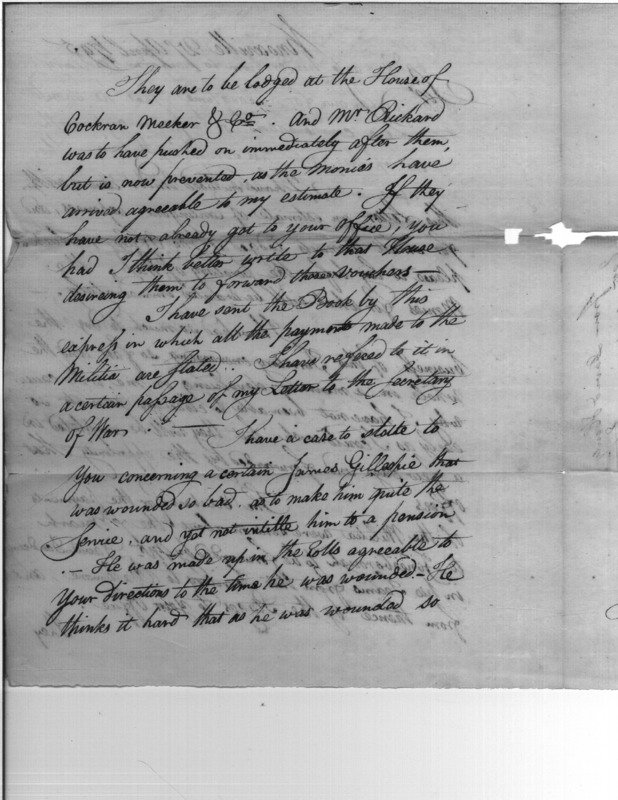 They are to be lodged at the House of
Cockran Meeker & Co. And Mr Rickard
was to have pushed on immediately after them,
but is now prevented, as the Monies have
arrived agreeable to my estimate. If they
have not already got to your office, you
had I think better write to that House
desireing them to forward those Vouchers —
I have sent the Book by this
express in which all the payments made to the
Militia are stated. I have refered to it in
a certain passage of my Letter to the Secretary
of War. — I have a case to state to
You concerning a certain James Gillespie that
was wounded so bad, as to make him quite the
Service, and yet not intitle him to a pension
. — He was made up in the Rolls agreeable to
Your directions to the time he was wounded — He
thinks it hard that as he was wounded so